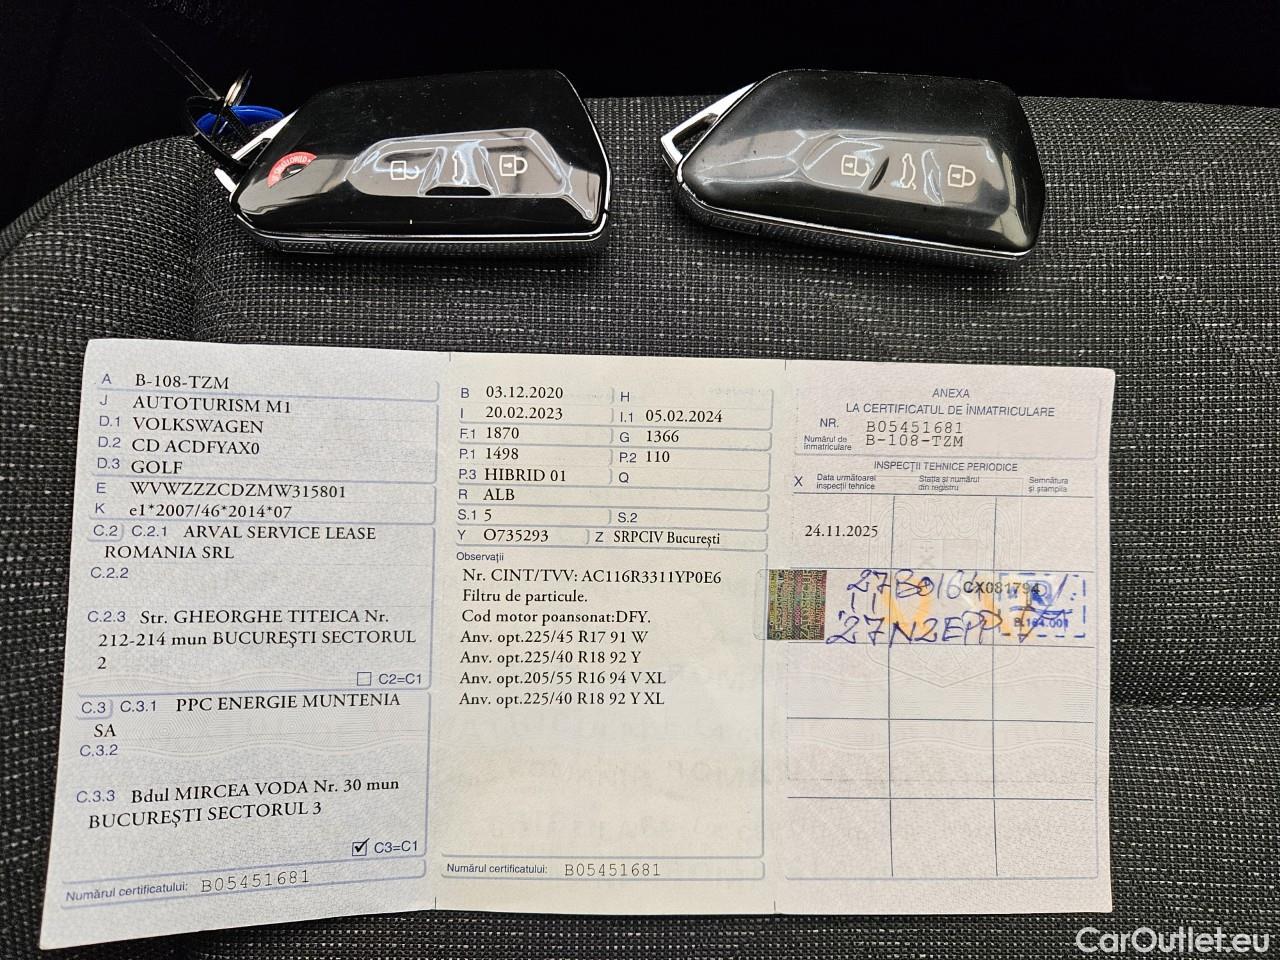 A B-108-TZM
J AUTOTURISM M1
D.1 VOLKSWAGEN
D.2 CD ACDFYAX0
D.3 GOLF
E WVWZZZCDZMW315801
K e1*2007/46*2014*07
C.2 C.2.1 ARVAL SERVICE LEASE
ROMANIA SRL
C.2.2
C.2.3 Str. GHEORGHE TITEICA Nr.
212-214 mun BUCUREȘTI SECTORUL
2
C2=C1
C.3 C.3.1 PPC ENERGIE MUNTENIA
SA
C.3.2
C.3.3 Bdul MIRCEA VODA Nr. 30 mun
BUCUREȘTI SECTORUL 3
C3=C1
Numărul certificatului: B05451681
B 03.12.2020 H
I 20.02.2023 I.1 05.02.2024
F.1 1870 G 1366
P.1 1498 P.2 110
P.3 HIBRID 01 Q
R ALB
S.1 5 S.2
Y O735293 Z SRPCIV București
Observații
Nr. CINT/TVV: AC116R3311YP0E6
Filtru de particule.
Cod motor poansonat:DFY.
Anv. opt.225/45 R17 91 W
Anv. opt.225/40 R18 92 Y
Anv. opt.205/55 R16 94 V XL
Anv. opt.225/40 R18 92 Y XL
Numărul certificatului: B05451681
ANEXA
LA CERTIFICATUL DE ÎNMATRICULARE
NR. B05451681
Numărul de înmatriculare B-108-TZM
INSPECȚII TEHNICE PERIODICE
X Data următoarei inspecții tehnice
Stația și numărul din registru
Semnătura și ștampila
24.11.2025
CX081794
CarOutlet.eu